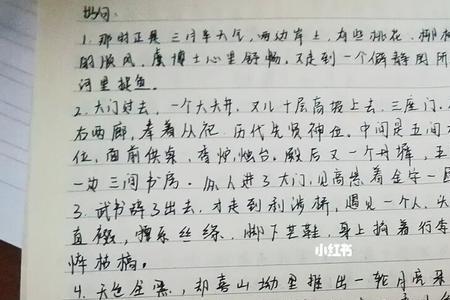 妙句:
1. 那时正是三月半天气,两边岸上,有些桃花、柳
的顺风,虞博士心里舒畅,又走到一个僻静的所
河里捉鱼。
2. 大门过去,一个大天井,又几十层高坡上去,三座门。
右两廊,奉着从祀、历代先贤神位。中间是五间大
位,面前供桌、香炉、烛台。殿后又一个丹墀,五
一边三间书房。众人进了大门,见高悬着金字一匾
3. 武书辞了出去,才走到利涉桥,遇见一个人,头
直裰,擐系丝绦,脚下芒鞋,身上掮着行李
悴枯槁。
小红书
4. 天色全黑,却喜山坳里推出一轮月亮来